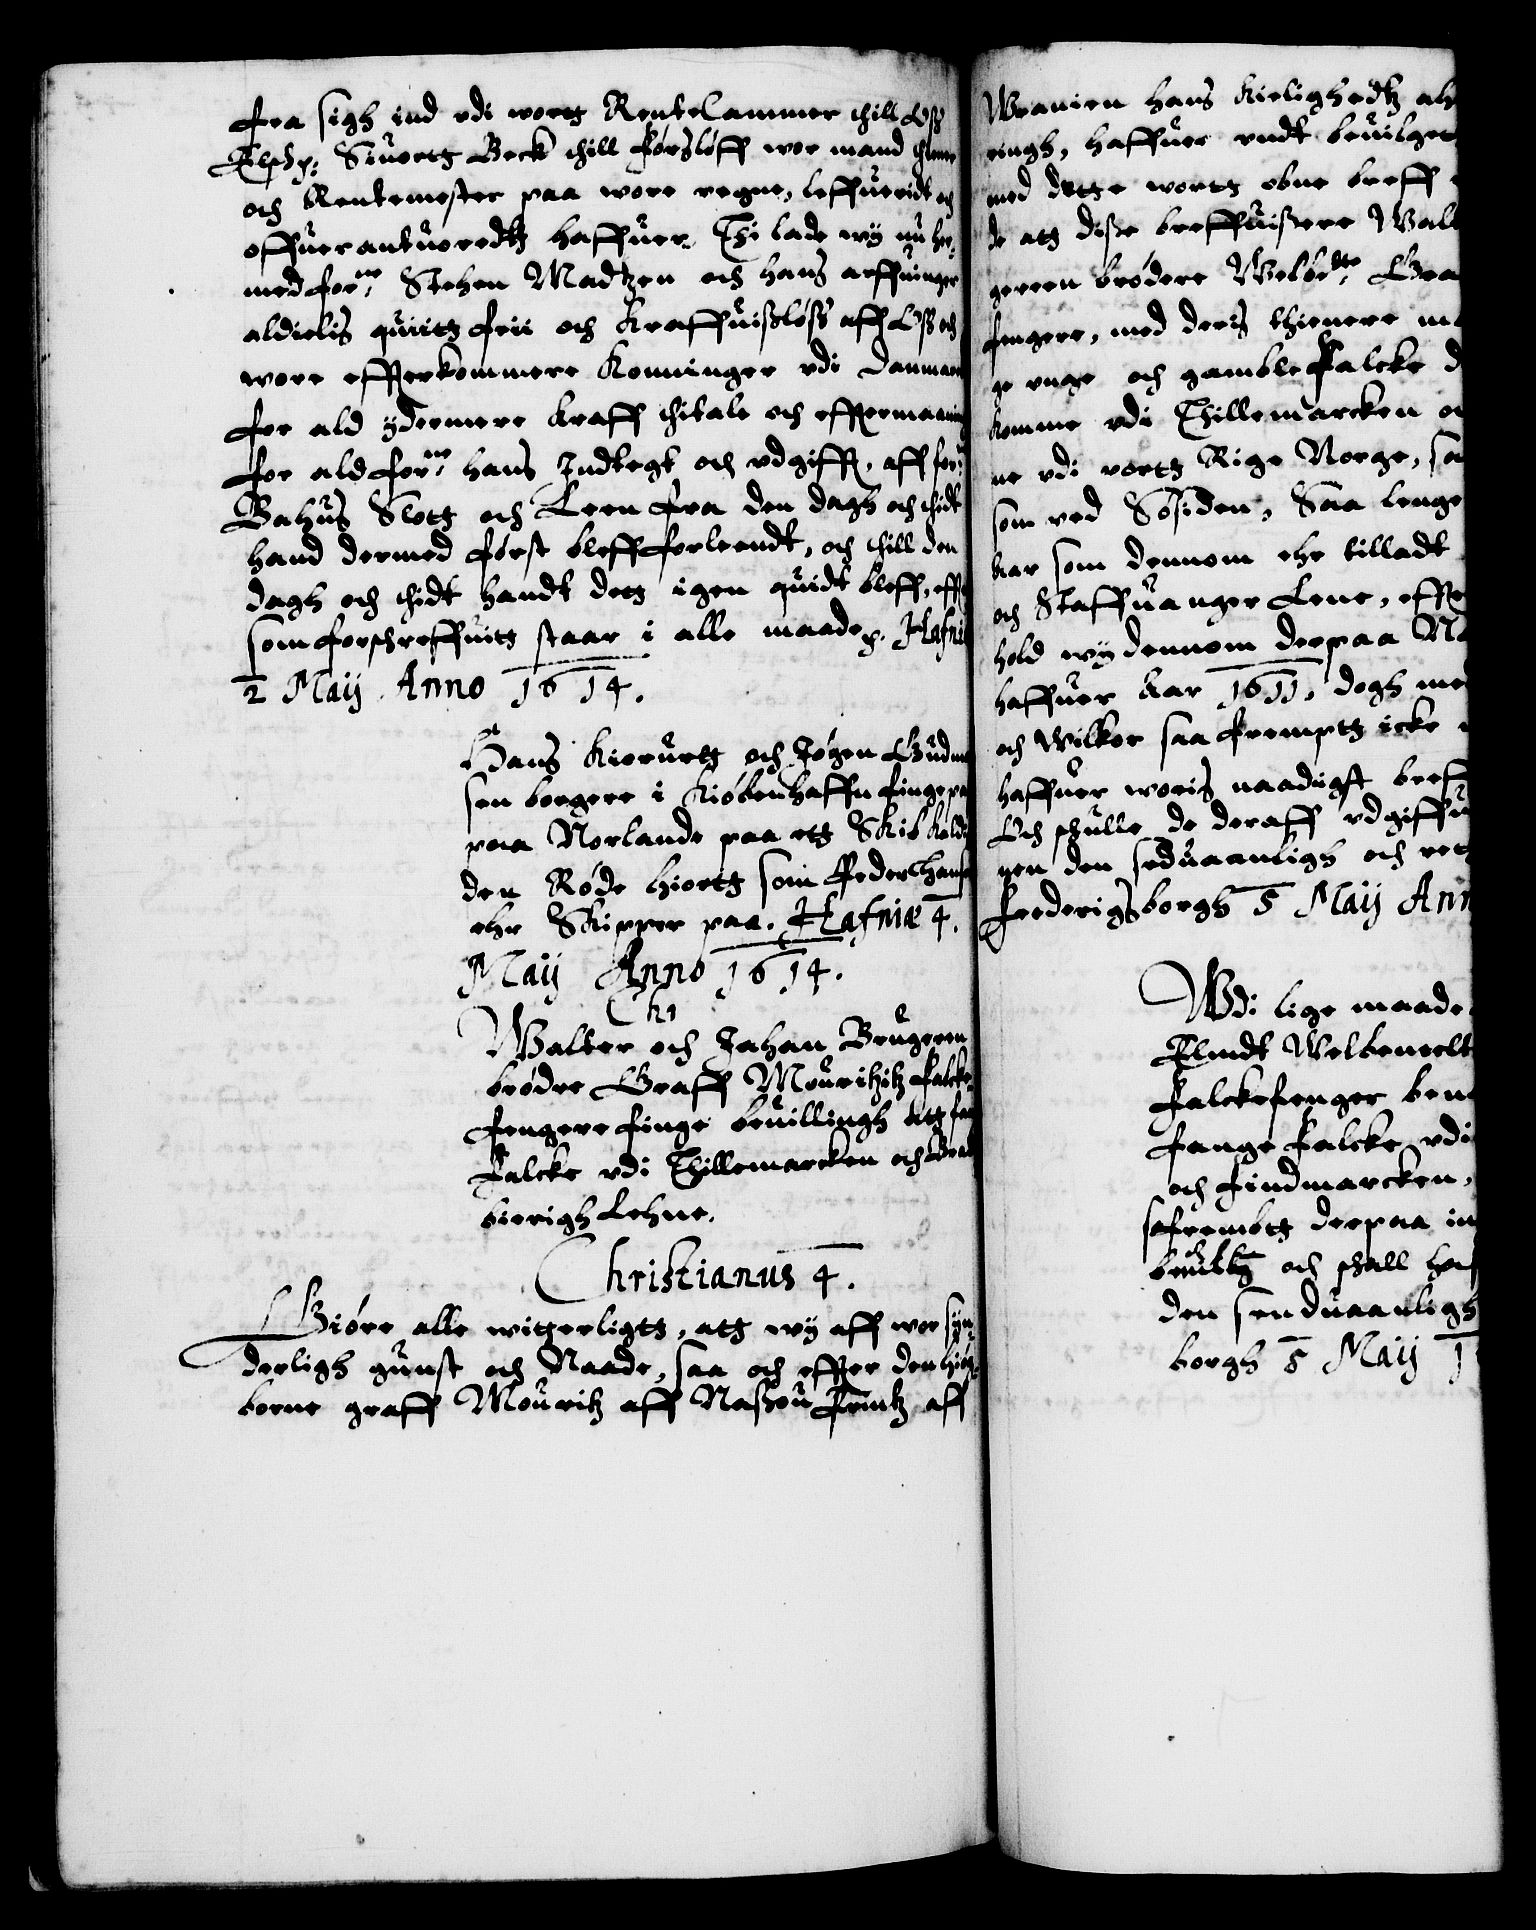 fra sigh ind vdi wortz Rentecammer thill Oss
Elsch: Siuortz Beck thill Førsløff wor mand thiener
och Rentemester paa wore vegne, leffueridt och
offuerantuoredtz haffuer Thi lade wy nu her
med forne Stehen Madtzen och hans arffuinger
aldielis quiitz frii och Kraffuisløss aff Oss och
wore effterkommere Konninger vdi Danmarck
for ald ydermere kraff thitale och effermaaning
for ald forne hans Indtegt och vdgifft, aff forne
Bahus Slotz och Leen fra den dagh och thidt
hand dermed først bleff forleendt, och thill den
dagh och thidt handt detz igen quidt bleff, effter
som forschreffuitz staar i alle maade p. Hafniæ
2 Maij Anno 1614.
Hans Kierurtz och Jøgen Gudm
sen borgere i Kiøbenhaffn finge pas
paa Norlande paa etz Skib kaldis
den Røde Hiortz som Peder Hans
ehr Skipper paa. Hafniæ 4.
Maij Anno 1614.
Walter och Johan Brugeren
brødre Graff Mouritzitz falcke
fengere finge beuillingh atz fan
falcke vdi Thillemarcken och Brad
bierigh Lehne.
Christianus 4.
Giøre alle witterligtz, atz wy aff wor syn
derligh gunst och Naade, saa och effter den høig
borne graff Mouritz aff Nassou Printz aff
Wranien hans Kielighedtz ah
ringh, haffuer vndt beuilget
med dette wortz obne breff
de atz disse breffuissere Walt
geren brødere Welbørdte Gra
fengere, med deris thienere m
ge unge och gamble Falcke d
komme vdi Thillemarcken oc
ne vdi vortz Rige Norge, sa
som ved Søsiden, Saa lenge
aar som dennom ehr tilladt
och Staffuanger Lene, effter
hold wy dennom derpaa Na
haffuer Aar 1611, dogh me
och Wilkor saa fremptz icke
haffuer woris naadigst breff
Och schulle de deraff vdgiffu
gen den seduaanligh och ret
Frederigsborgh 5 Maij Ann
Wdi lige maade
Elindt Welbeneclt
Falckefenger ben
fange Falcke vdi
och Findmarcken,
safrembtz derpaa in
och schall haf
den seeduaanligh
borgh 5 Maij 1